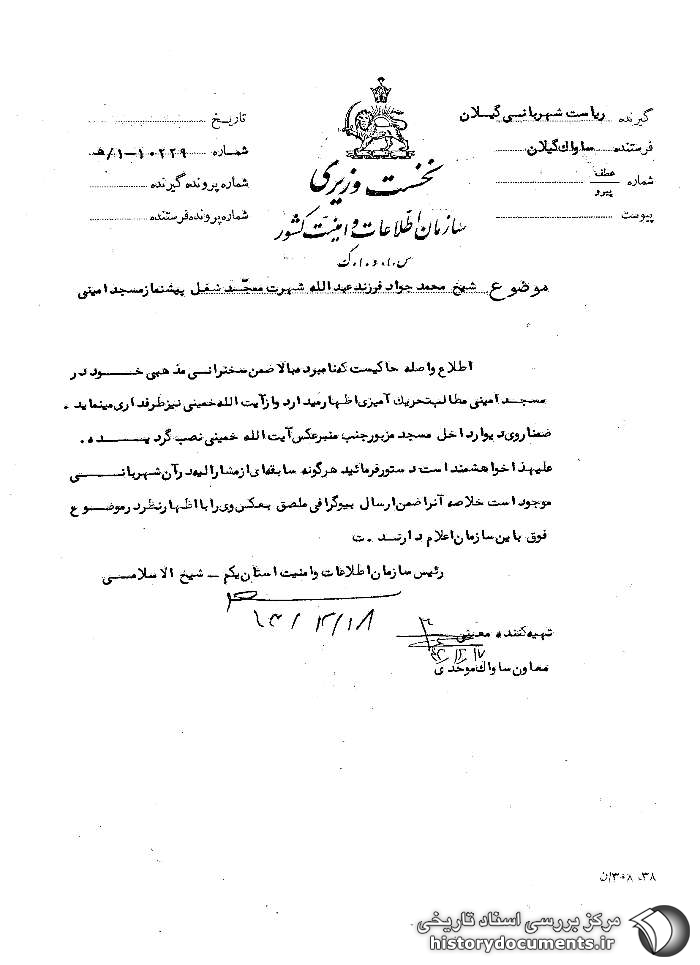 گیرنده ریاست شهربانی گیلان
فرستنده ساواک گیلان
شماره عطف
پیرو
پیوست
نخست وزیری
سازمان اطلاعات و امنیت کشور
س.ا.و.ا.ک
تاریخ
شماره ۱۰۲۲۹-۱/ه‍
شماره پرونده گیرنده
شماره پرونده فرستنده
موضوع شیخ محمد جواد فرزند عبدالله شهرت شغل پیشنماز مسجد امینی
اطلاع واصله حاکیست که نامبرده بالا ضمن سخنرانی مذهبی خود در
مسجد امینی مطالب تحریک آمیزی اظهار میدارد و از آیت الله خمینی نیز طرفداری مینماید .
ضمنا روی دیوار داخل مسجد مزبور جنب منبر عکس آیت الله خمینی نصب گردیده .
علیهذا خواهشمند است دستور فرمائید هرگونه سابقه‌ای از مشارالیه در آن شهربانی
موجود است خلاصه آنرا ضمن ارسال بیوگرافی ملصق بعکس وی را با اظهار نظر در موضوع
فوق باین سازمان اعلام دارند . ت
رئیس سازمان اطلاعات و امنیت استان یکم – شیخ الاسلامی
۱۸/۴/
تهیه کننده معینی
معاون ساواک موحدی
۳۸. ۳۰۸/ن
مرکز بررسی اسناد تاریخی
historydocuments.ir